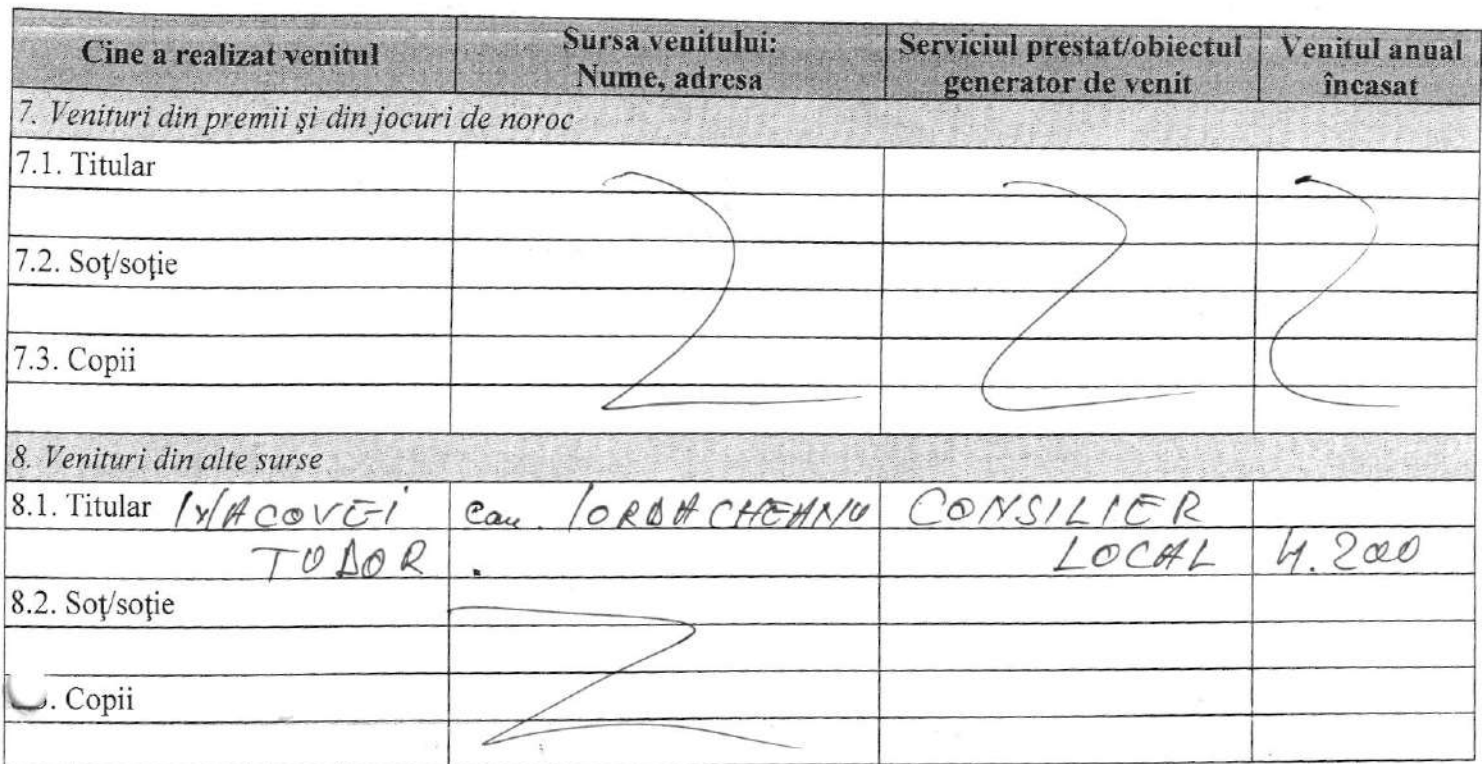 Cine a realizat venitul Sursa venitului: Nume, adresa Serviciul prestat/obiectul generator de venit Venitul anual încasat
7. Venituri din premii şi din jocuri de noroc
7.1. Titular
7.2. Soţ/soţie
7.3. Copii
8. Venituri din alte surse
8.1. Titular IACOVEI IORDACHEANU CONSILIER
TUDOR LOCAL 4.200
8.2. Soţ/soţie
. Copii